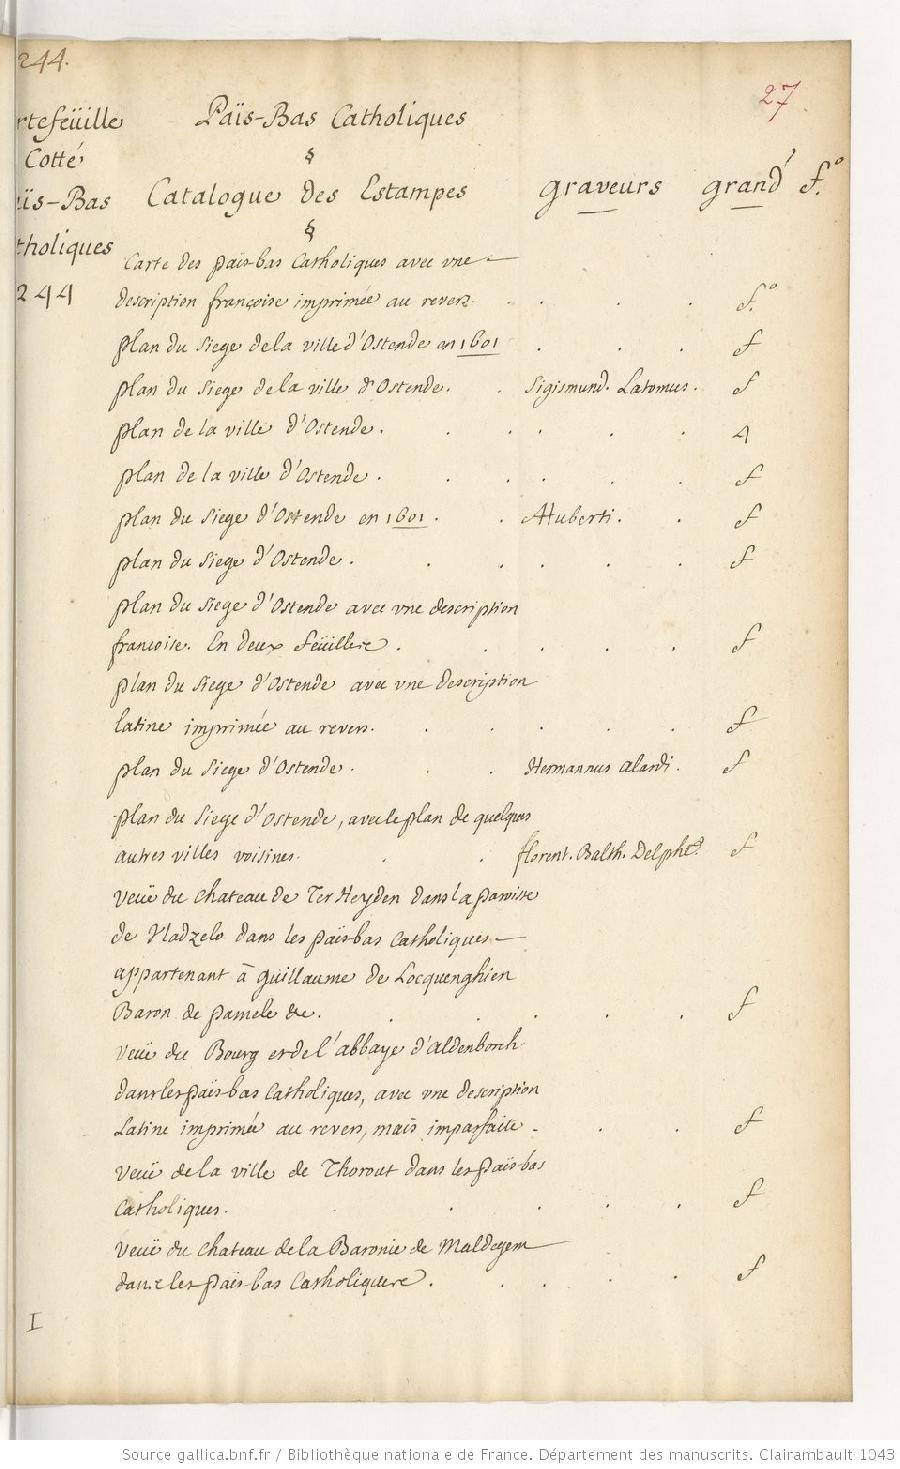 244.
27
rtefeüille
Cotté
ïs-Bas
tholiques
244
Païs-Bas Catholiques
§
Catalogue des Estampes graveurs grand f.º
§
Carte des païs-bas Catholiques avec vne
description françoise imprimée au revers . . . f.º
plan du siege de la ville d'Ostende en 1601 . . . f
plan du siege de la ville d'Ostende. . Sigismund. Latomus. f
plan de la ville d'Ostende. . . . . . 4
plan de la ville d'Ostende. . . . . . f
plan du siege d'Ostende en 1601. . AHuberti. . f
plan du siege d'Ostende. . . . . . f
plan du siege d'Ostende avec vne description
francoise. En deux feüilles . . . . . f
plan du siege d'Ostende avec vne description
latine imprimée au revers. . . . . . f
plan du siege d'Ostende. . . Hermannus alardi. f
plan du siege d'Ostende, avec le plan de quelques
autres villes voisines. . . florent. Balth. Delpht. f
veüe du chateau de Ter Heyden dans la paroisse
de Vladzelo dans les païs-bas Catholiques
appartenant à guillaume de Locquenghien
Baron de pamele &c. . . . . . f
veüe du Bourg et de l'abbaye d'aldenborch
dans les païs bas Catholiques, avec vne description
Latine imprimée au revers, mais imparfaite . . . f
veüe de la ville de Thorout dans les païs-bas
Catholiques. . . . . f
veüe du chateau de la Baronie de Maldegem
dans les païs-bas Catholiques . . . . . f
I
Source gallica.bnf.fr / Bibliothèque nationale de France. Département des manuscrits. Clairambault 1043